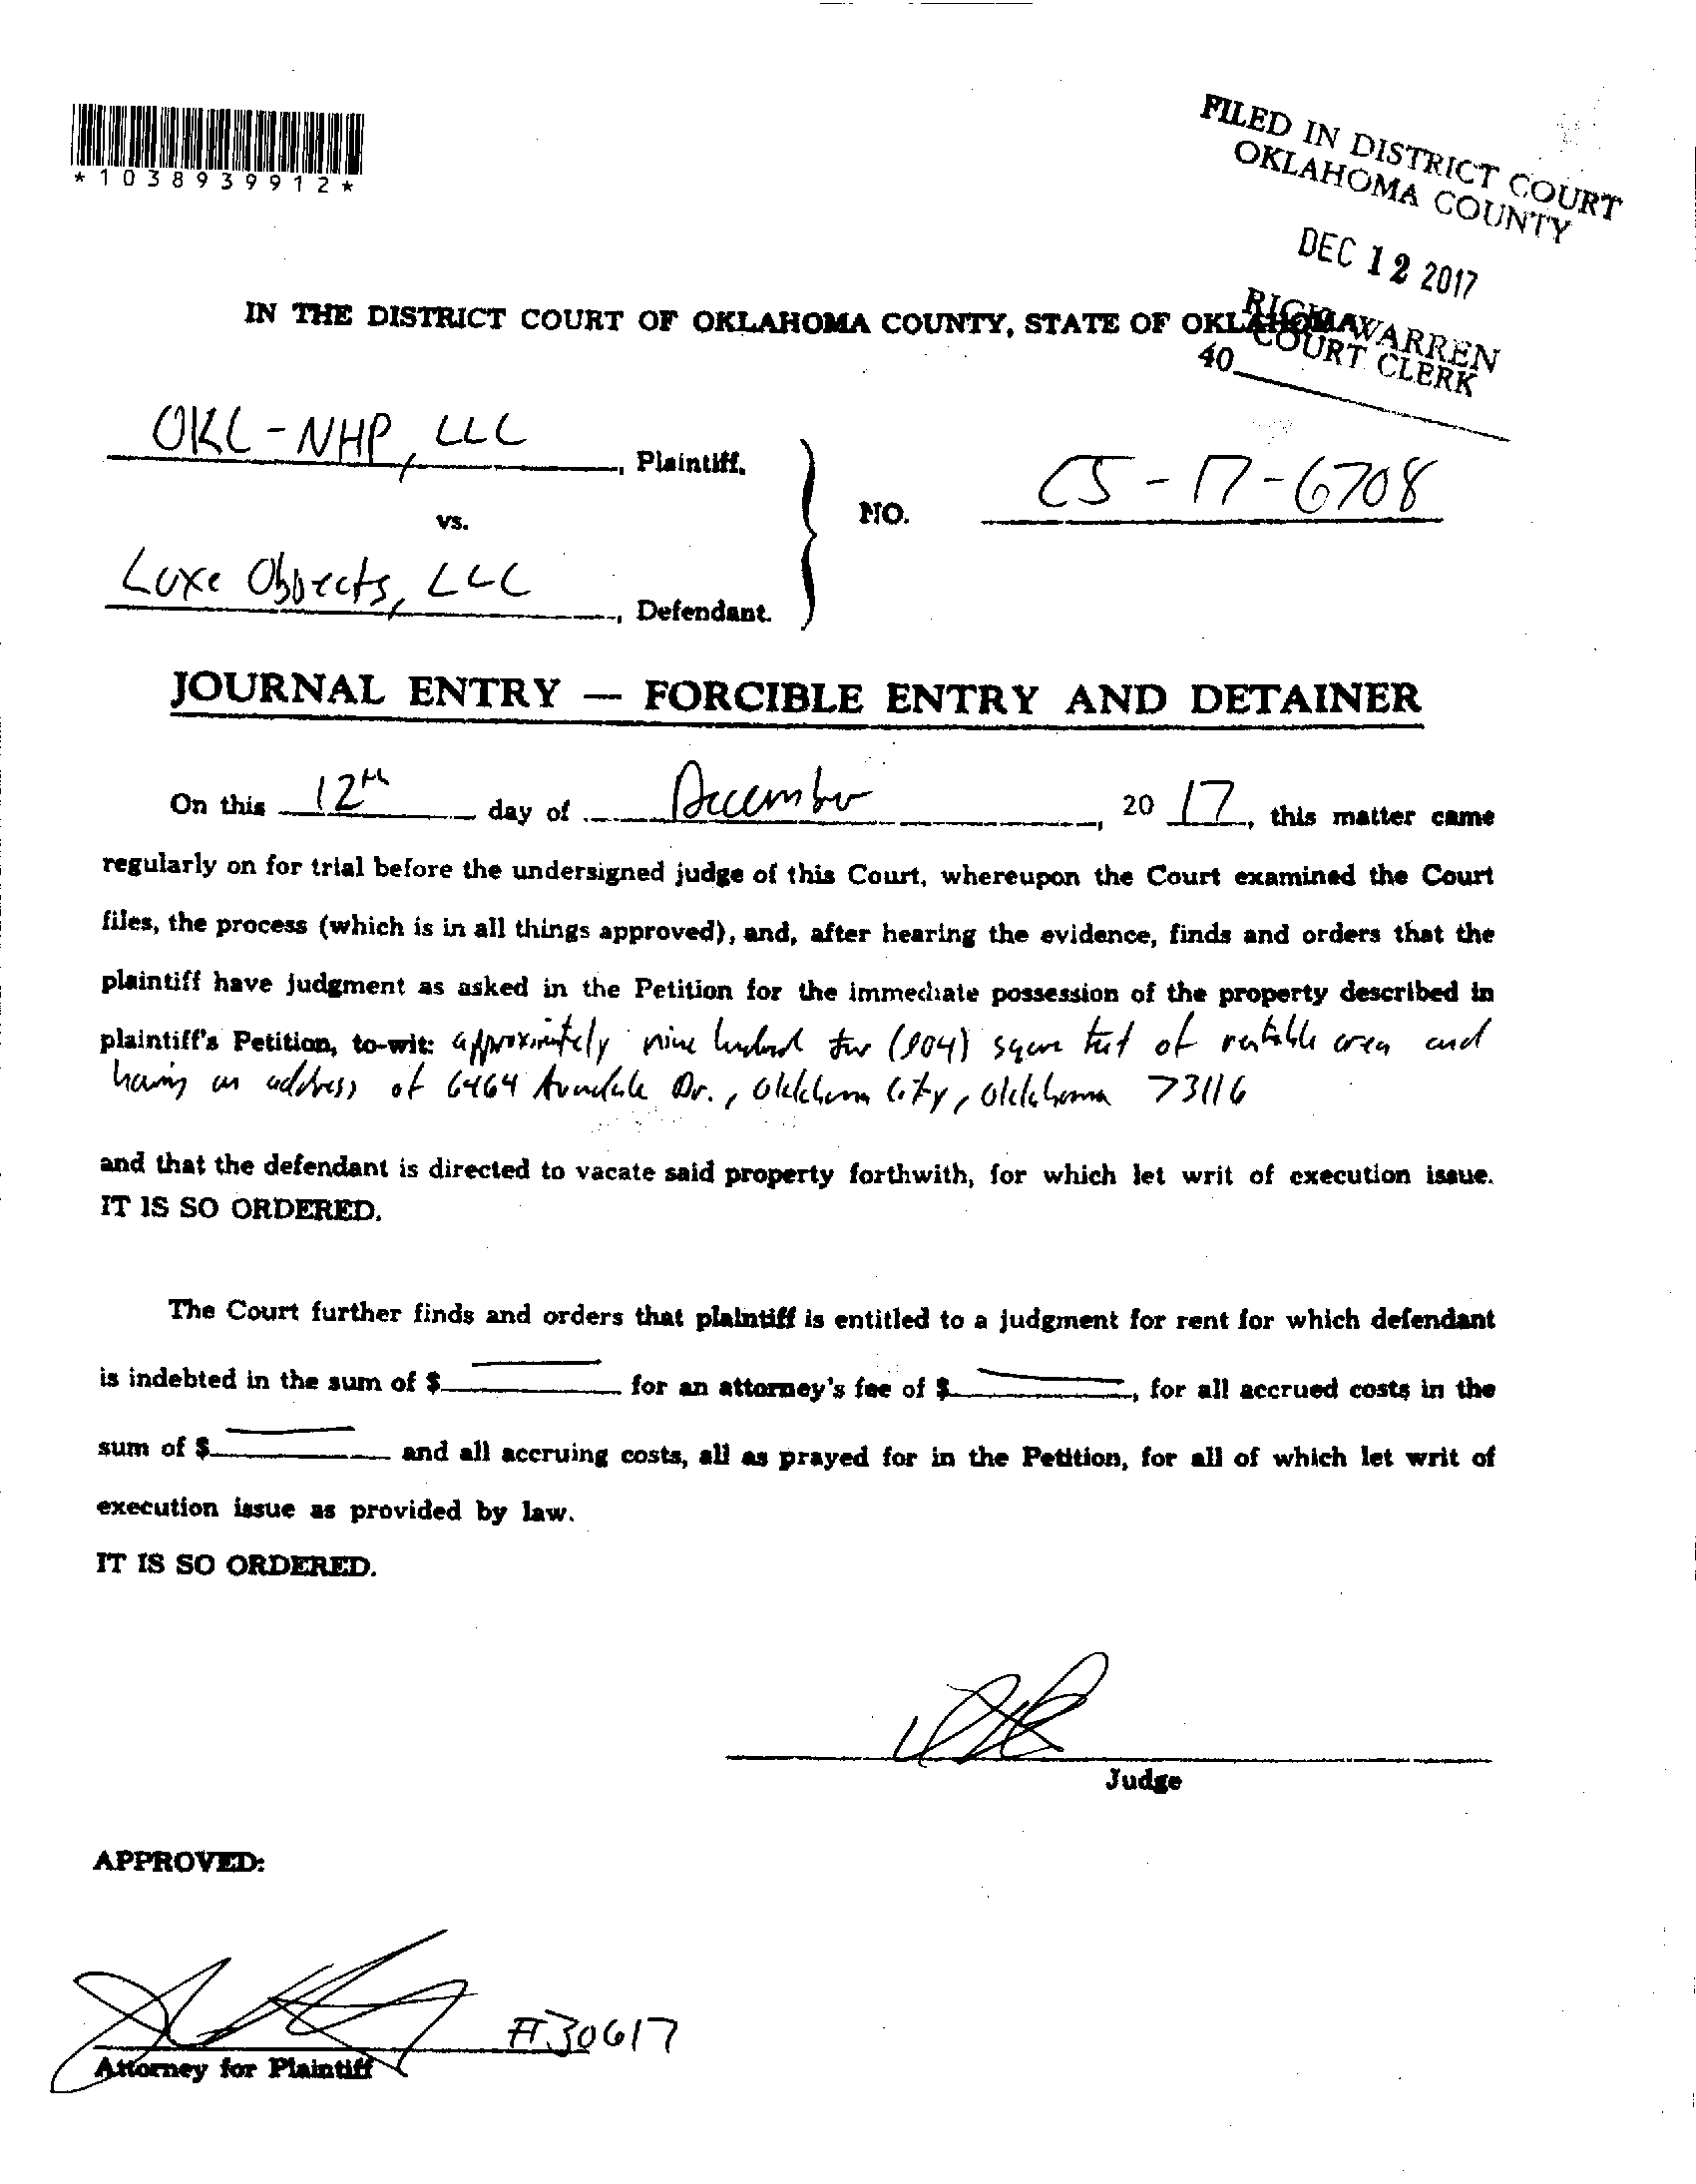 *1038939912*
FILED IN DISTRICT COURT
OKLAHOMA COUNTY
DEC 12 2017
RICK WARREN
COURT CLERK
40
IN THE DISTRICT COURT OF OKLAHOMA COUNTY, STATE OF OKLAHOMA
OKC-NHP, LLC, Plaintiff,
vs.
NO. CS-17-6708
Luxe Objects, LLC, Defendant.
JOURNAL ENTRY — FORCIBLE ENTRY AND DETAINER
On this 12th day of December, 20 17, this matter came
regularly on for trial before the undersigned judge of this Court, whereupon the Court examined the Court
files, the process (which is in all things approved), and, after hearing the evidence, finds and orders that the
plaintiff have judgment as asked in the Petition for the immediate possession of the property described in
plaintiff's Petition, to-wit: approximately nine hundred four (904) square feet of rentable area and
having an address of 6464 Avondale Dr., Oklahoma City, Oklahoma 73116
and that the defendant is directed to vacate said property forthwith, for which let writ of execution issue.
IT IS SO ORDERED.
The Court further finds and orders that plaintiff is entitled to a judgment for rent for which defendant
is indebted in the sum of $ for an attorney's fee of $, for all accrued costs in the
sum of $ and all accruing costs, all as prayed for in the Petition, for all of which let writ of
execution issue as provided by law.
IT IS SO ORDERED.
Judge
APPROVED:
#30617
Attorney for Plaintiff